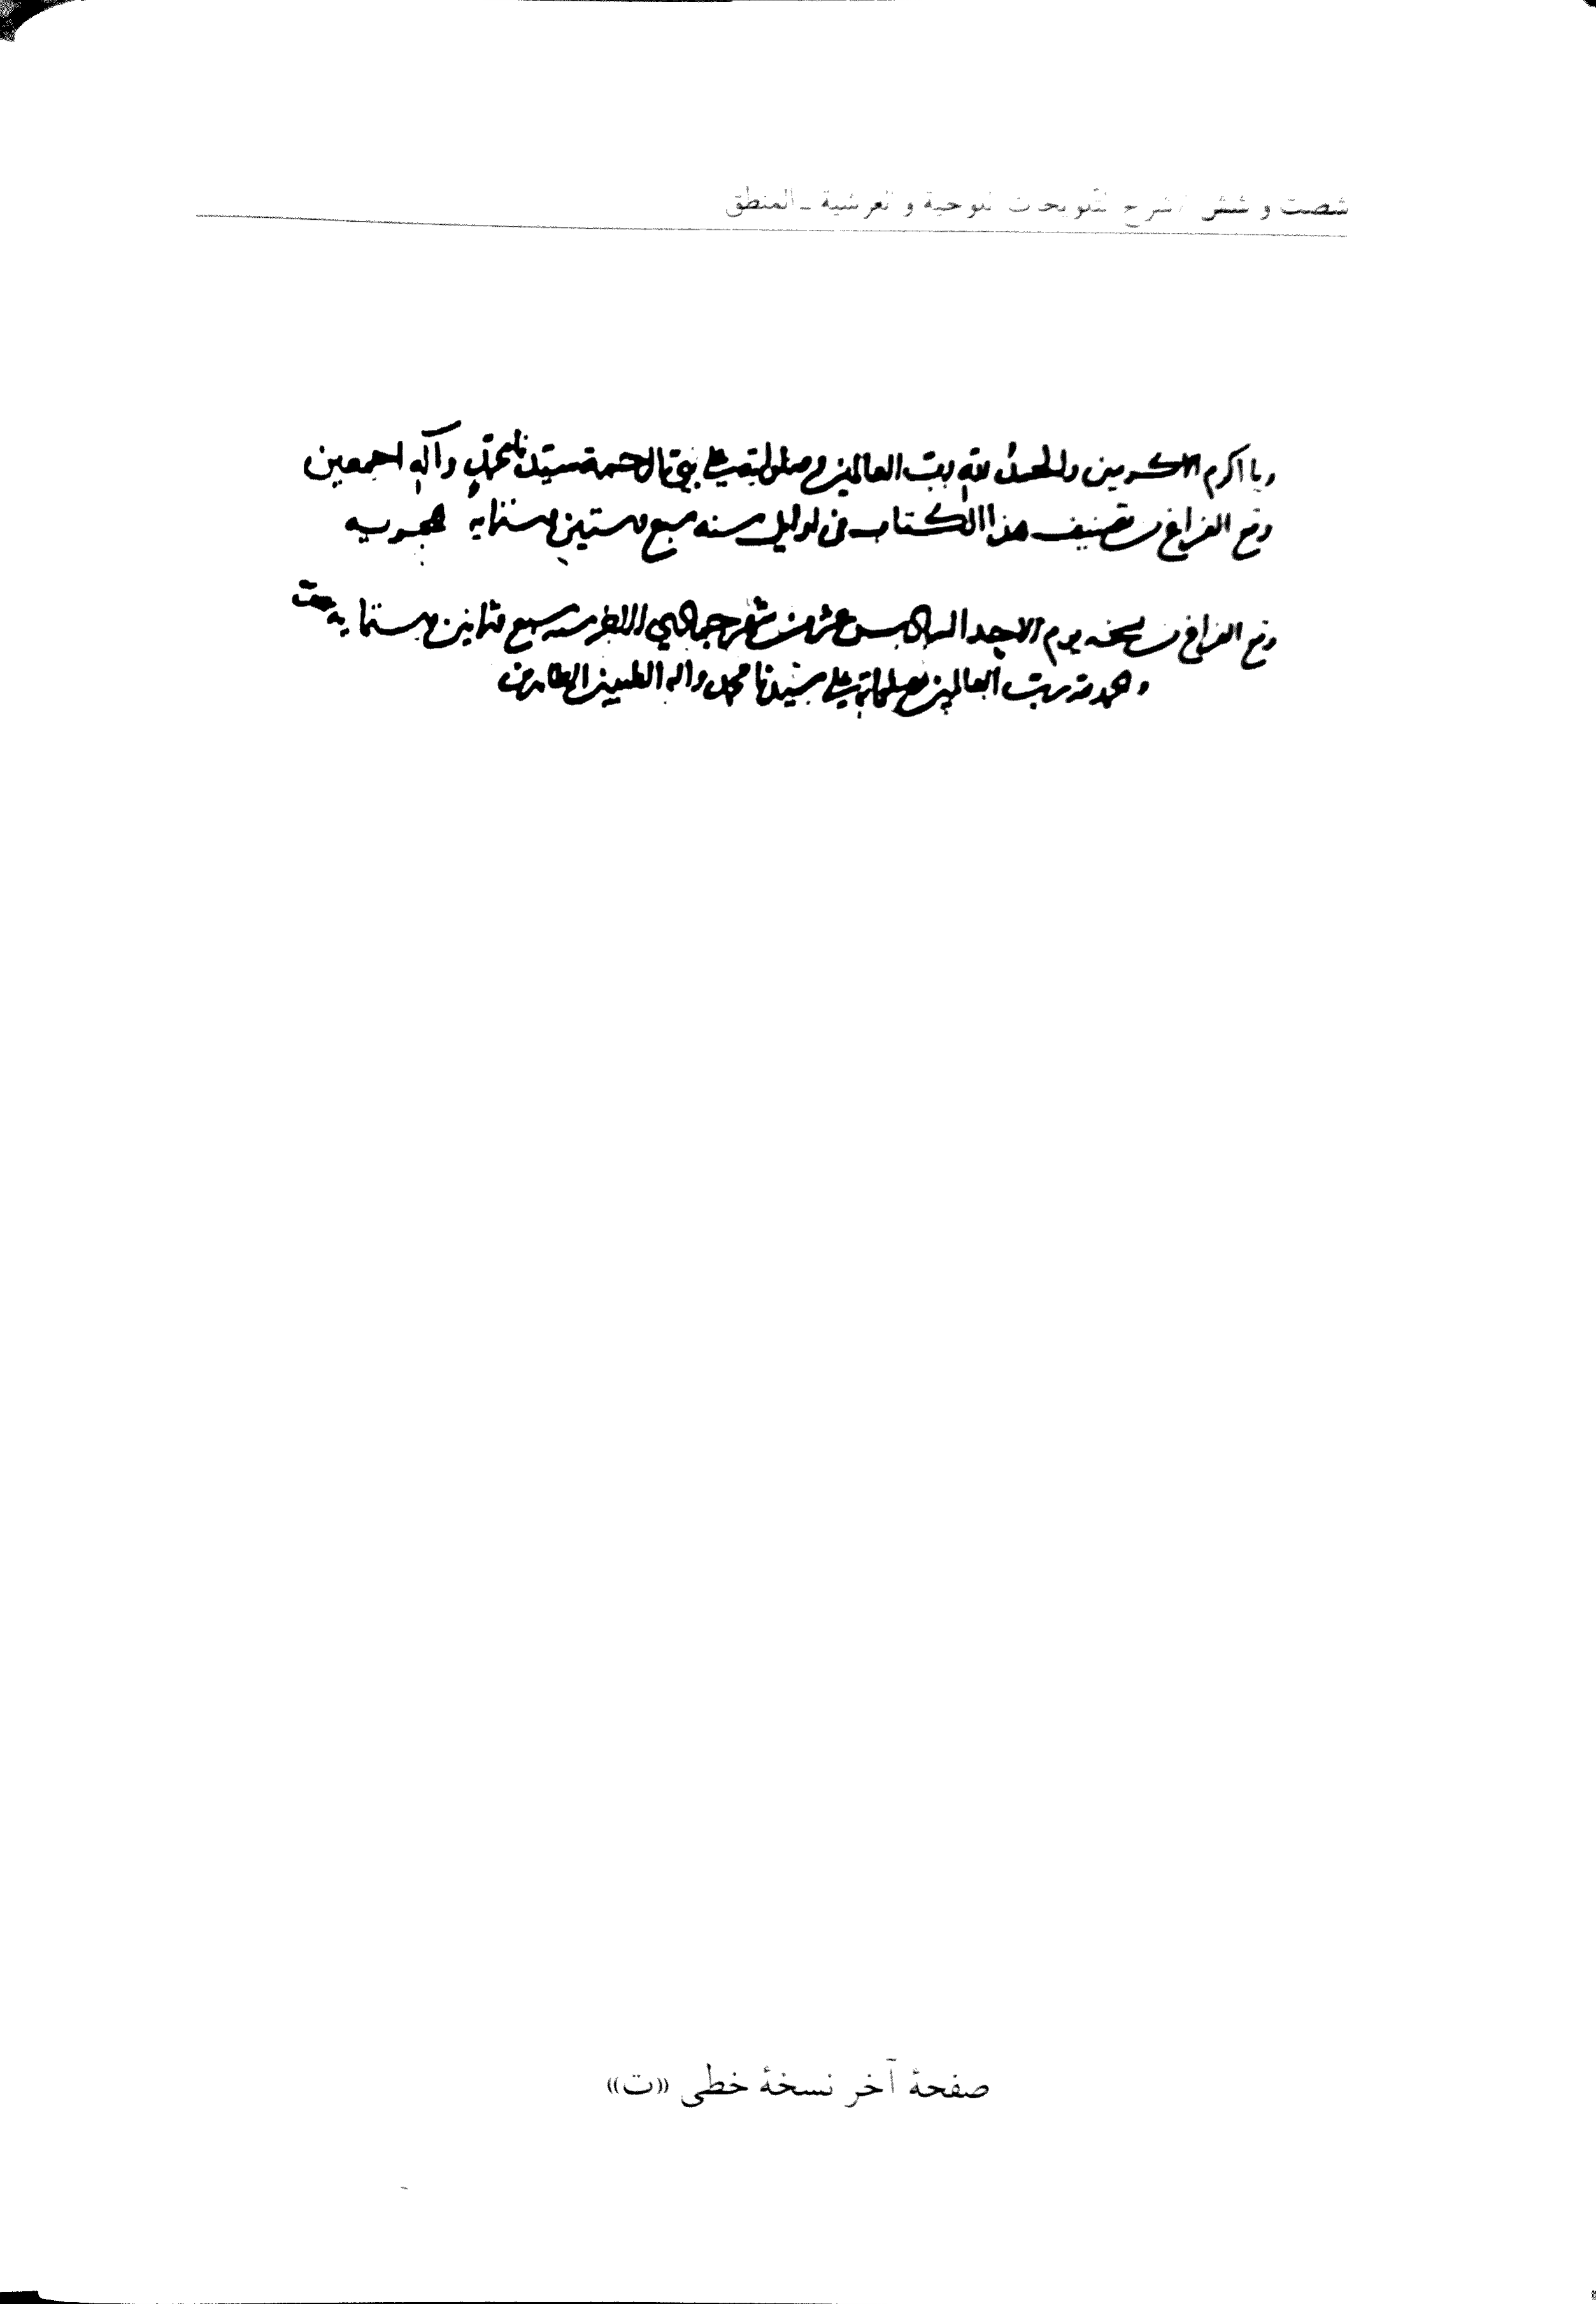 شصت و شش / شرح التلويحات اللوحية و العرشية ـ المنطق
ويا اكرم الاكرمين والحمد لله رب العالمين وصلواته على نبي الرحمة سيدنا محمد وآله اجمعين
وقع الفراغ من تصنيف هذا الكتاب في اوايل سنه سبع وستين وستمايه هجريه
وقع الفراغ من نسخه يوم الاحد السادس عشر من شهر جمادي الاخر سنه سبع وثمانين وستمايه
والحمد لله رب العالمين وصلواته على سيدنا محمد واله الطيبين الطاهرين
صفحهٔ آخر نسخهٔ خطی «ت»